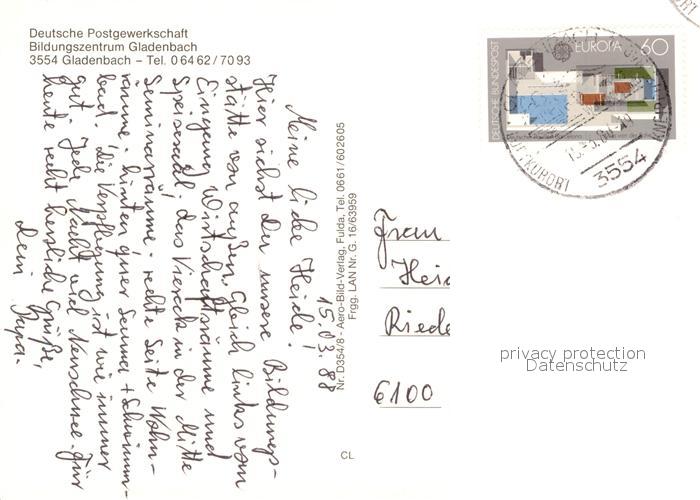 Deutsche Postgewerkschaft
Bildungszentrum Gladenbach
3554 Gladenbach – Tel. 0 64 62 / 70 93
15.03.88
Meine liebe Heide!
Hier siehst du unsere Bildungs-
stätte von außen. Gleich links vom
Eingang Wirtschaftsräume und
Speisesaal; das Viereck in der Mitte
Seminarräume - rechte Seite Wohn-
räume - hinten quer Sauna + Schwimm-
bad. Die Verpflegung ist wie immer
gut. Jede Nacht viel Neuschnee. Für
heute recht herzliche Grüße,
Dein Papa.
Nr. D354/8 - Aero-Bild-Verlag, Fulda, Tel. 0661/602605
Frgg. LAN Nr. G. 16/63959
CL
EUROPA 60
DEUTSCHE BUNDESPOST
KNEIPPKURORT
3554
Frau
Heid
Riede
6100
privacy protection
Datenschutz